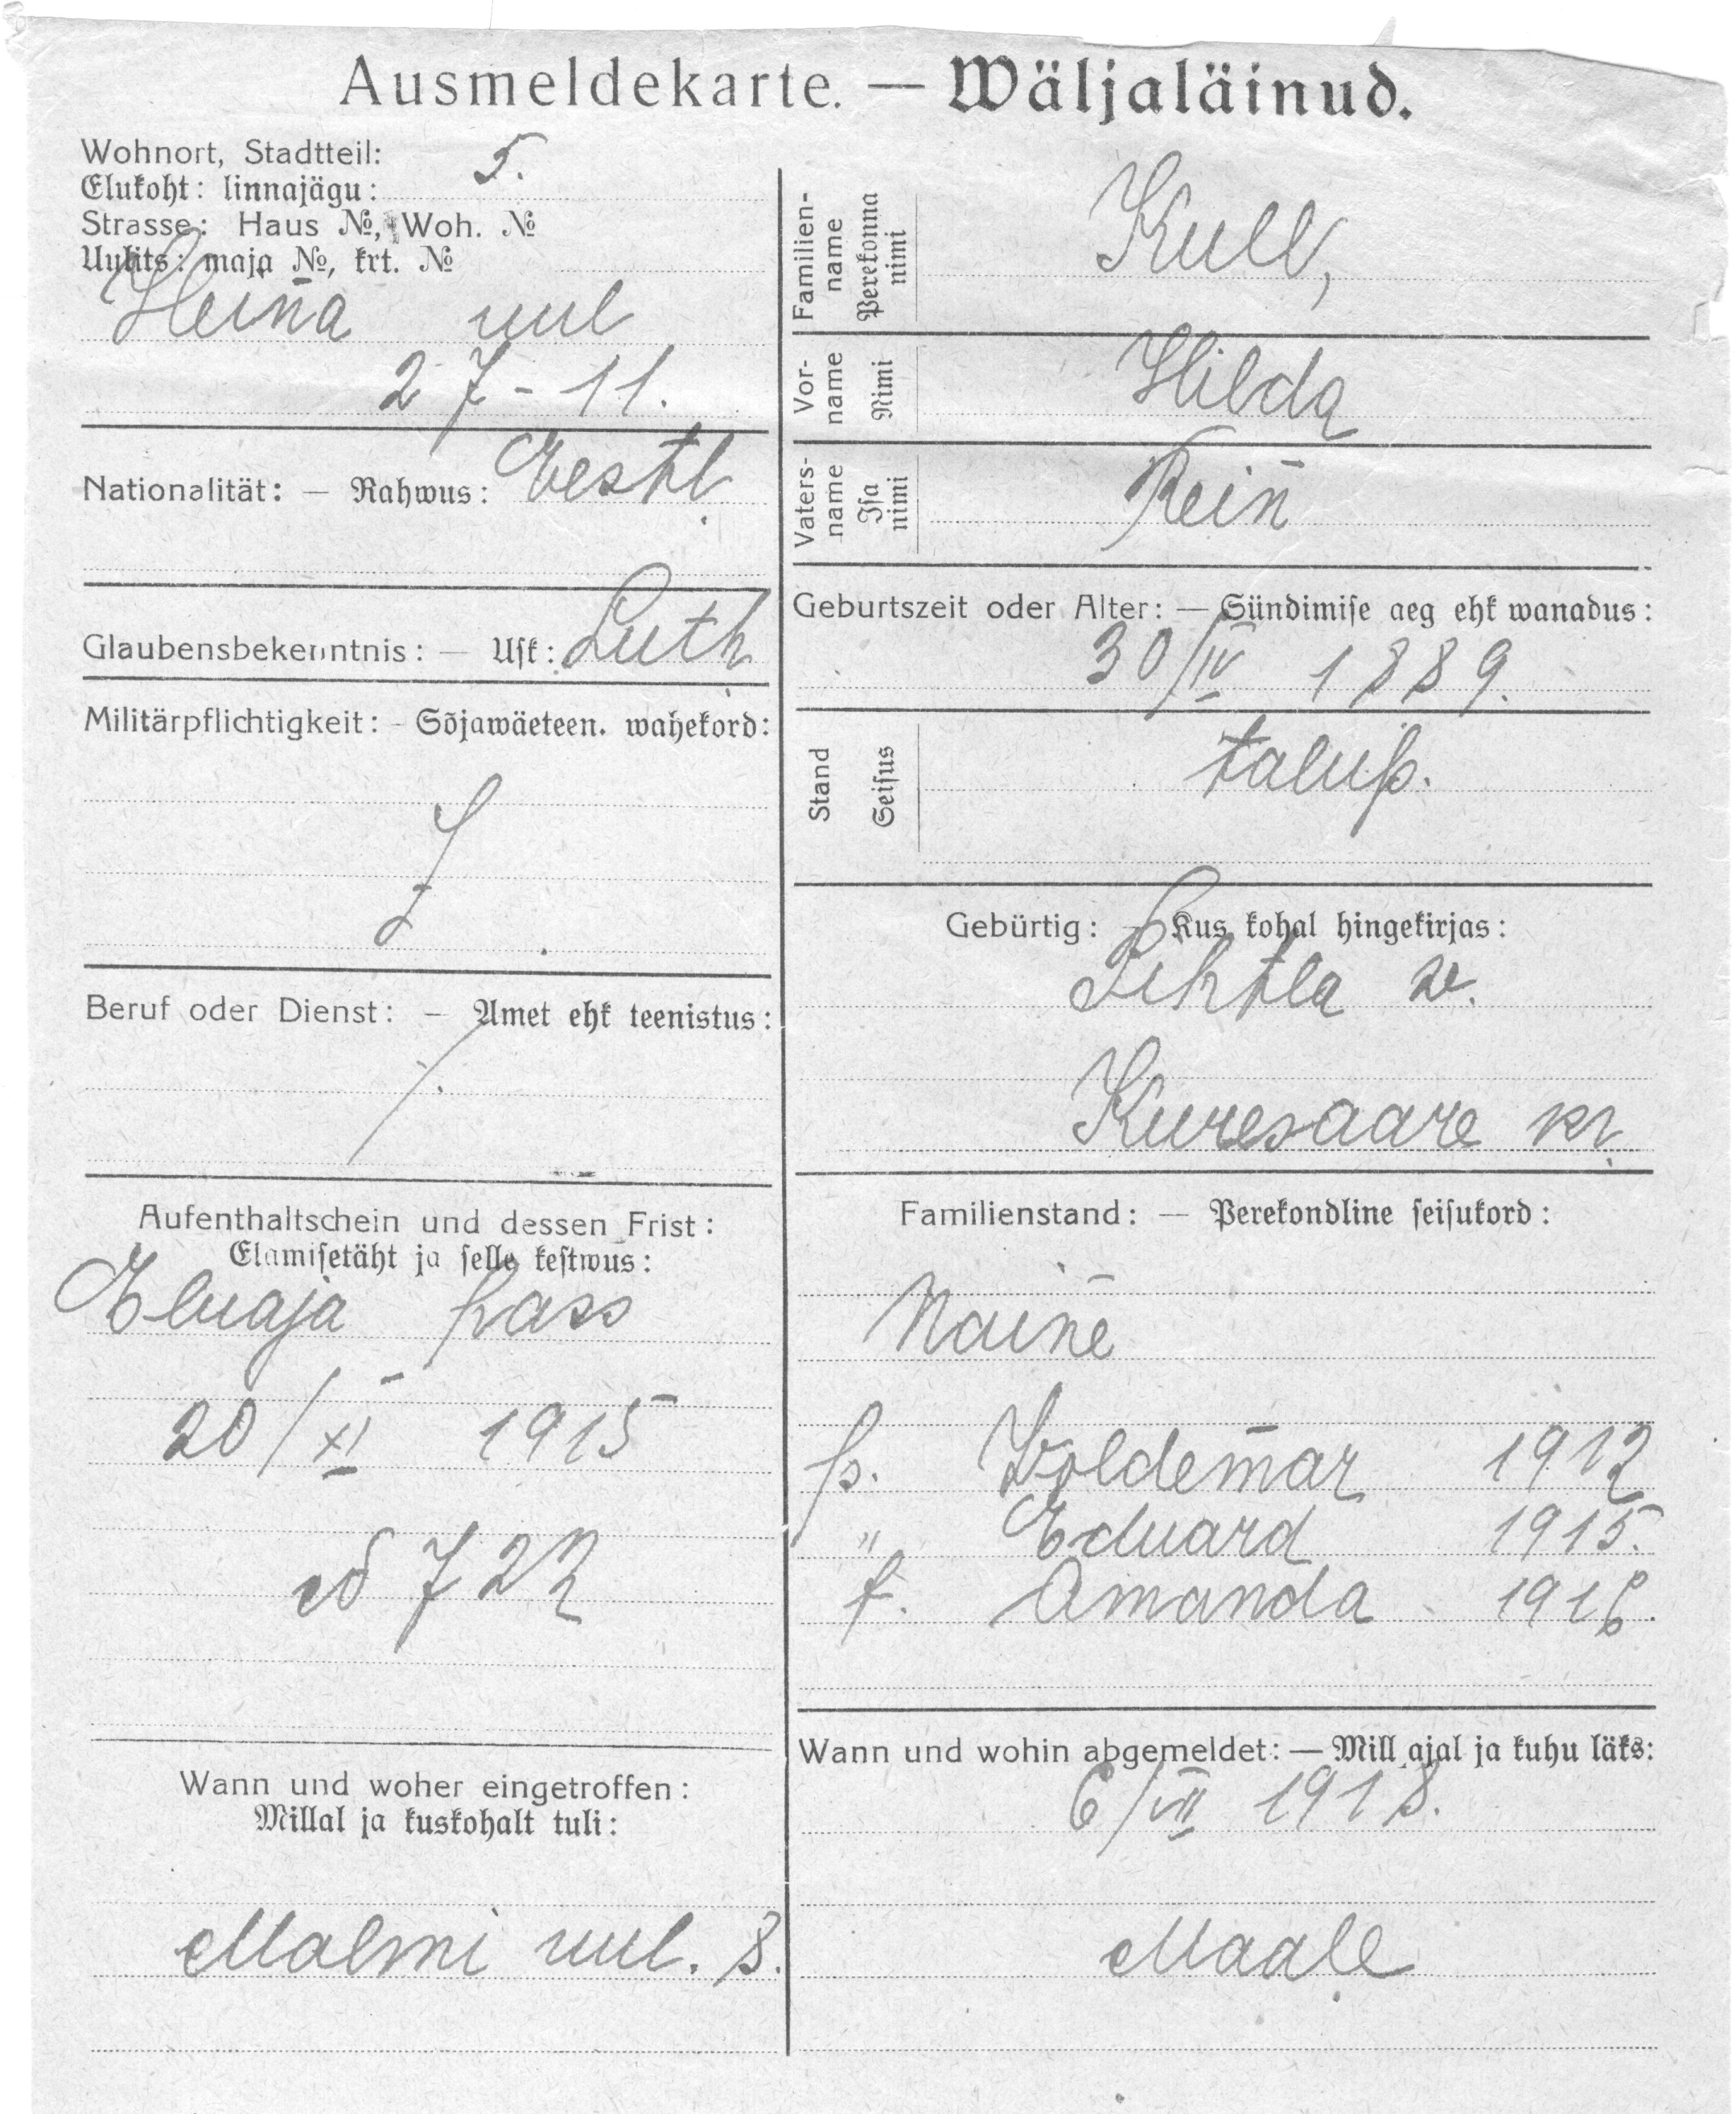 Ausmeldekarte. — Wäljaläinud.
Wohnort, Stadtteil:
Elukoht: linnajägu: 5.
Strasse: Haus №, Woh. №
Uulits: maja №, krt. №
Heina uul
27-11.
Nationalität: — Rahwus: Eestl.
Glaubensbekenntnis: — Usk: Luth
Militärpflichtigkeit: - Sõjawäeteen. wahekord:
Beruf oder Dienst: — Amet ehk teenistus:
Aufenthaltschein und dessen Frist:
Elamisetäht ja selle kestwus:
Eluaja pass
20/XI 1915
№ 722
Wann und woher eingetroffen:
Millal ja kuskohalt tuli:
Malmi uul. 8.
Familien-
name
Perekonna
nimi
Kull,
Vor-
name
Nimi
Hilda
Vaters-
name
Isa
nimi
Rein
Geburtszeit oder Alter: — Sündimise aeg ehk wanadus:
30/IV 1889.
Stand
Seisus
talup.
Gebürtig: — Kus kohal hingekirjas:
Pihtla w.
Kuresaare kr.
Familienstand: — Perekondline seisukord:
Naine
p. Woldemar 1912
" Eduard 1915.
t. Amanda - 1916.
Wann und wohin abgemeldet: — Mill ajal ja kuhu läks:
6/VII 1918.
Maale